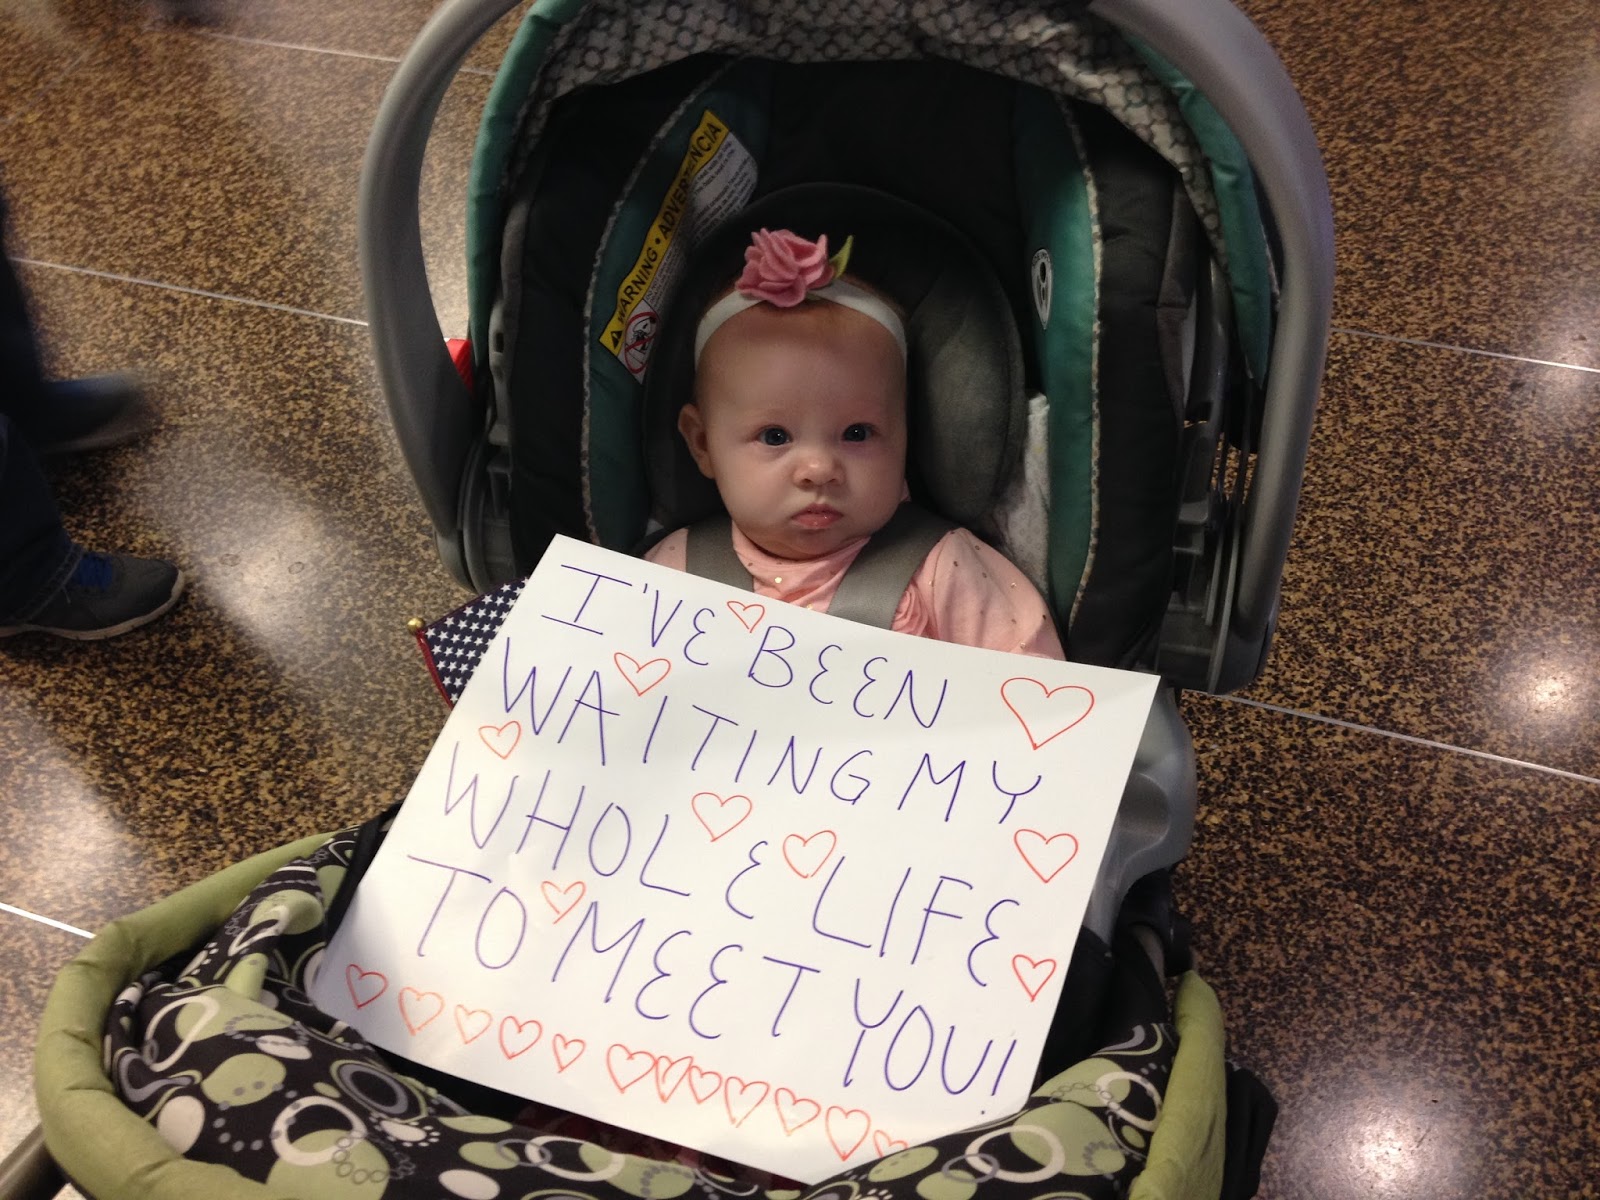 WARNING • ADVERTENCIA
I'VE BEEN
WAITING MY
WHOLE LIFE
TO MEET YOU!